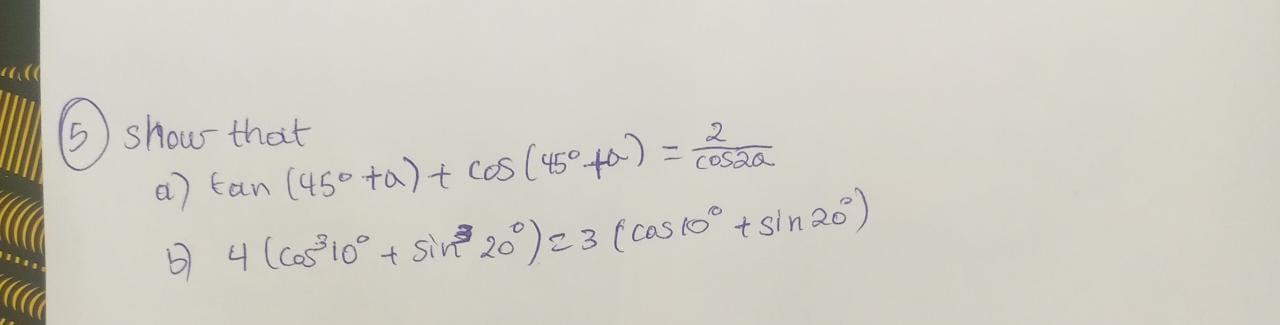 5 show that
a) tan (45° + a) + cos (45° + a) = 2/cos2a
b) 4 (cos³10° + sin³ 20°) = 3 (cos10° + sin 20°)